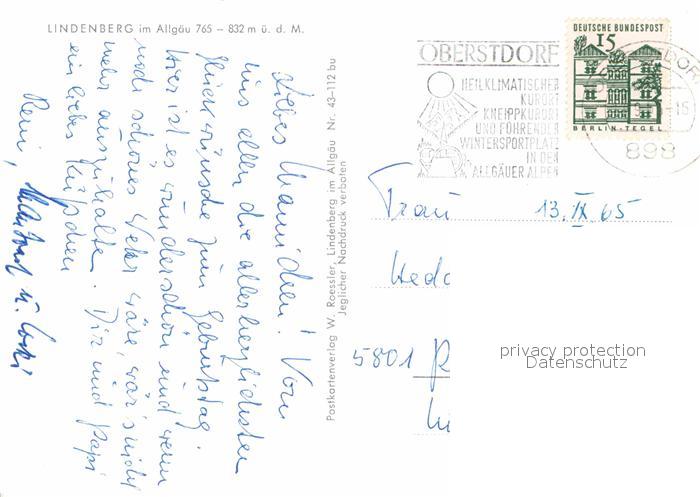 LINDENBERG im Allgäu 765 – 832 m ü. d. M.
Liebes Mamichen! Von
uns allen die allerherzlichsten
Glückwünsche zum Geburtstag.
Hier ist es wunderschön und wenn
noch schönes Wetter wäre, wär's nicht
mehr auszuhalten. Dir und Papi
ein liebes Küßchen
Postkartenverlag W. Roessler, Lindenberg im Allgäu Nr. 43-112 bu
Jeglicher Nachdruck verboten
OBERSTDORF
HEILKLIMATISCHER
KURORT
KNEIPPKURORT
UND FÜHRENDER
WINTERSPORTPLATZ
IN DEN
ALLGÄUER ALPEN
DEUTSCHE BUNDESPOST
15
BERLIN-TEGEL
898
Frau 13.IX 65
Hed
5801
privacy protection
Datenschutz